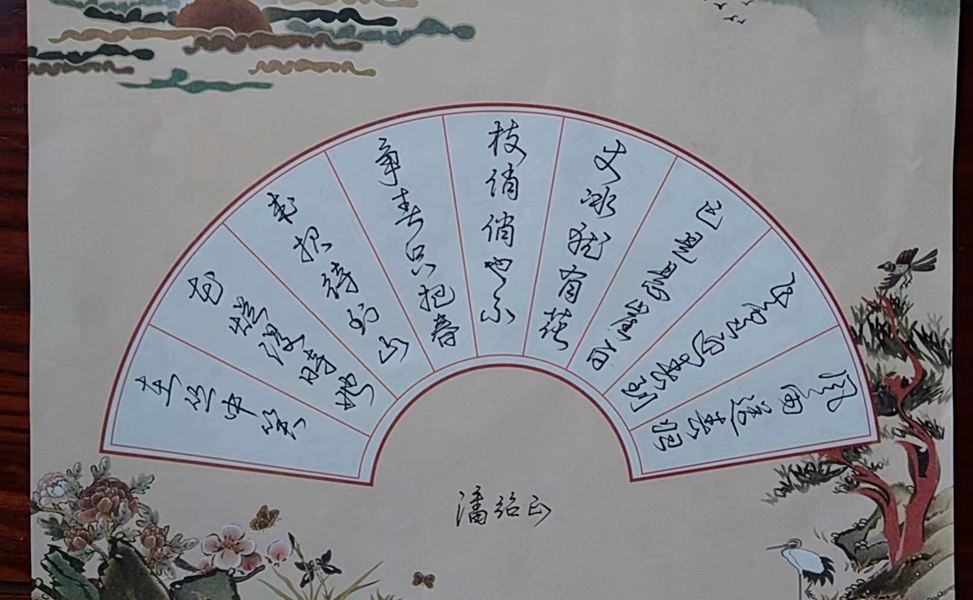 风雨送春归
飞雪迎春到
已是悬崖百
丈冰犹有花
枝俏俏也不
争春只把春
来报待到山
花烂漫时她
在丛中笑
潘绍